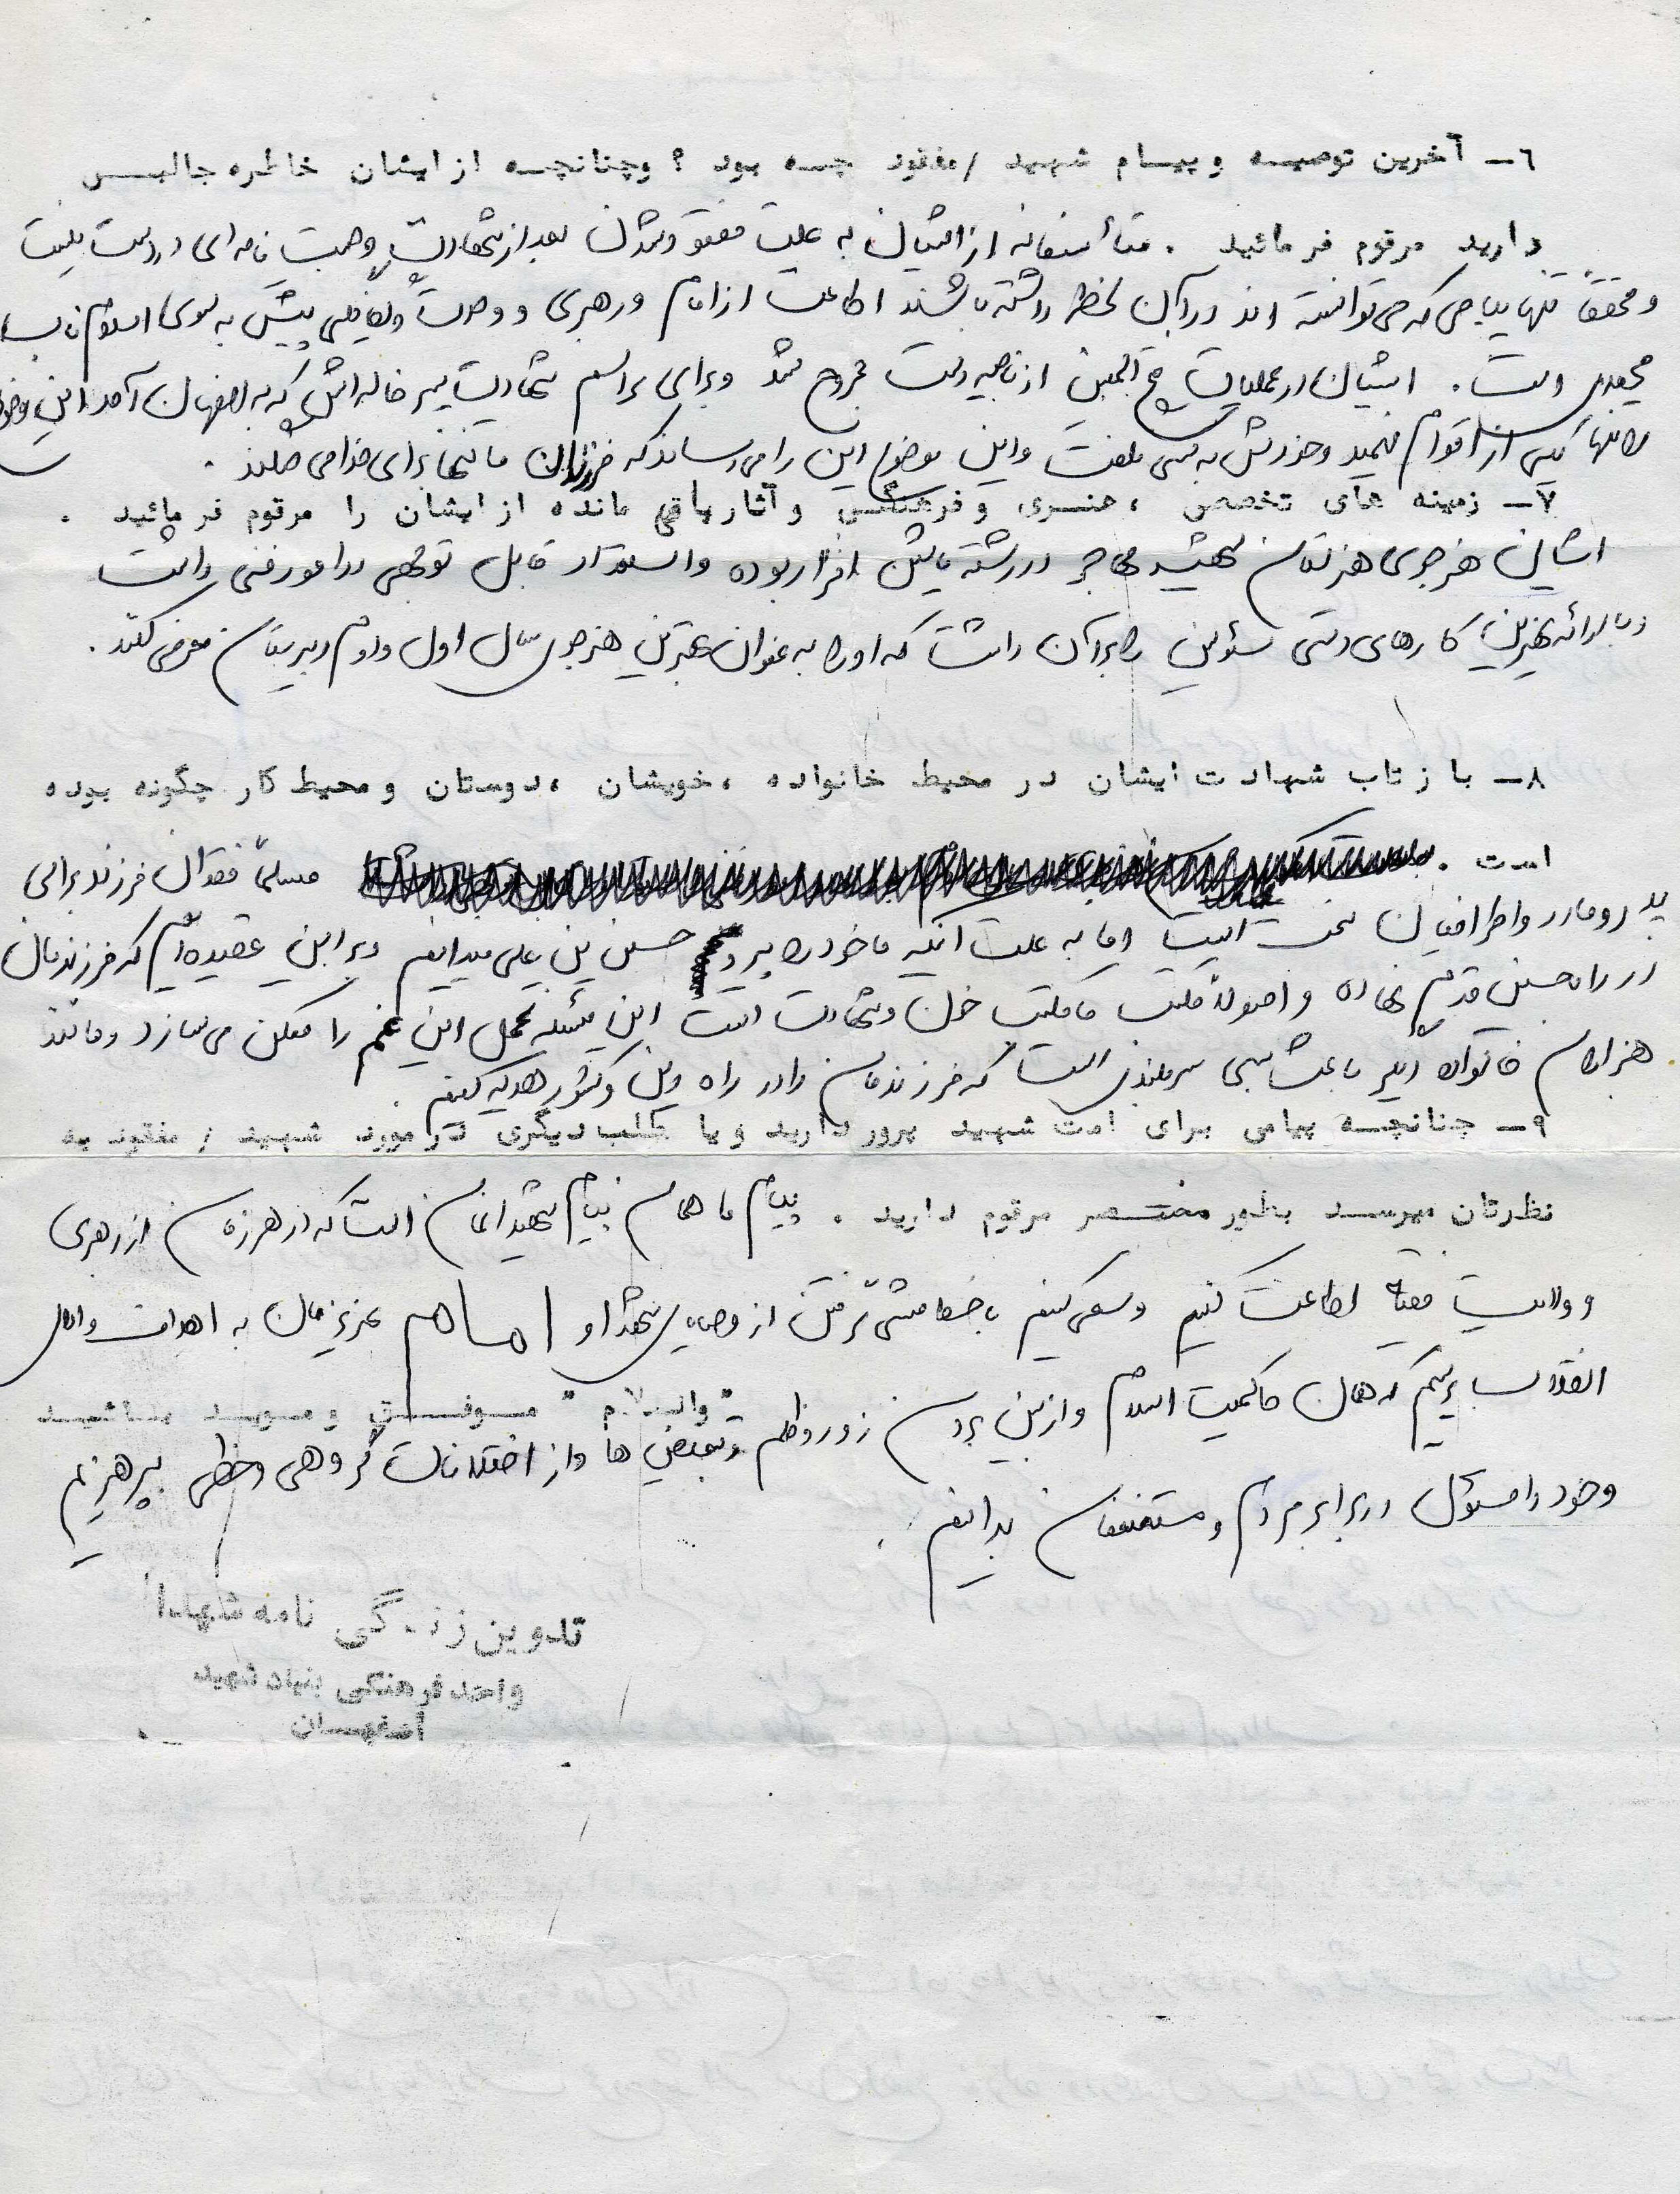 ٦ــ آخرین توصیه و پیام شهید /مفقود چه بود ؟ وچنانچه از ایشان خاطره جالبی
دارید مرقوم فرمائید . متأسفانه از ایشان به علت مفقود شدن بعد از شهادت وصیت نامه ای در دست نیست
و محققاً تنها پیامی که می توانسته اند در آن لحظه داشته باشند اطاعت از امام و رهبری و وحدت و پیش به سوی اسلام ناب
محمدی است . ایشان در عملیات فتح المبین از ناحیه دست مجروح شد و برای مراسم شهادت پسر خاله اش که به اصفهان آمد این موضوع
را تنها یکی از اقوام فهمید و خودش به کسی نگفت و این موضوع این را می رساند که فرزندان ما تنها برای خدا می جنگند .
٧ــ زمینه های تخصصی ، هنری و فرهنگی و آثار باقی مانده از ایشان را مرقوم فرمائید .
ایشان هنرجوی هنرستان شهید مهاجر در رشته ماشین افزار بوده و استعداد قابل توجهی در امور فنی داشت
و با ارائه بهترین کارهای دستی مسئولین را بر آن داشت که او را به عنوان بهترین هنرجوی سال اول و دوم دبیرستان معرفی کنند .
٨ــ بازتاب شهادت ایشان در محیط خانواده ، خویشان ، دوستان و محیط کار چگونه بوده
است . مسلماً فقدان فرزند برای
پدر و مادر و اطرافیان سخت است اما به علت آنکه ما خود را پیرو حسین بن علی میدانیم و بر این عقیده ایم که فرزندمان
در راه حسین قدم نهاده و اصولاً مکتب ما مکتب خون و شهادت است این مسئله تحمل این غم را ممکن می سازد و مانند
هزاران خانواده دیگر باعث بسی سربلندی است که فرزندمان را در راه دین و کشور هدیه کنیم .
٩ــ چنانچه پیامی برای امت شهید پرور دارید و یا مطلب دیگری در مورد شهید / مفقود به
نظرتان میرسد بطور مختصر مرقوم دارید . پیام ما همان پیام شهیدانمان است که در هر زمان از رهبری
و ولایت فقیه اطاعت کنیم و سعی کنیم با خط مشی گرفتن از وصایای شهدا و امام عزیزمان به اهداف والای
انقلاب برسیم که همان حاکمیت اسلام و از بین بردن زور و ظلم و تبعیض ها و از اختلافات گروهی و خطی بپرهیزیم
" والسلام " موفق و موید باشید
و خود را مسئول در برابر مردم و مستضعفان بدانیم .
تدوین زندگی نامه شهدا
واحد فرهنگی بنیاد شهید
اصفهان